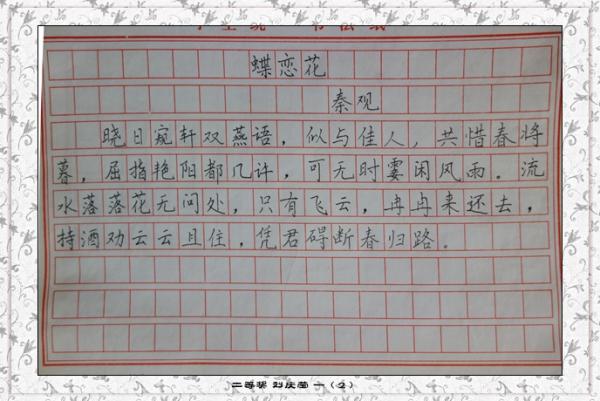 蝶恋花
秦观
晓日窥轩双燕语，似与佳人，共惜春将
暮，屈指艳阳都几许，可无时霎闲风雨。流
水落落花无问处，只有飞云，冉冉来还去，
持酒劝云云且住，凭君碍断春归路。
二等奖 一（2）